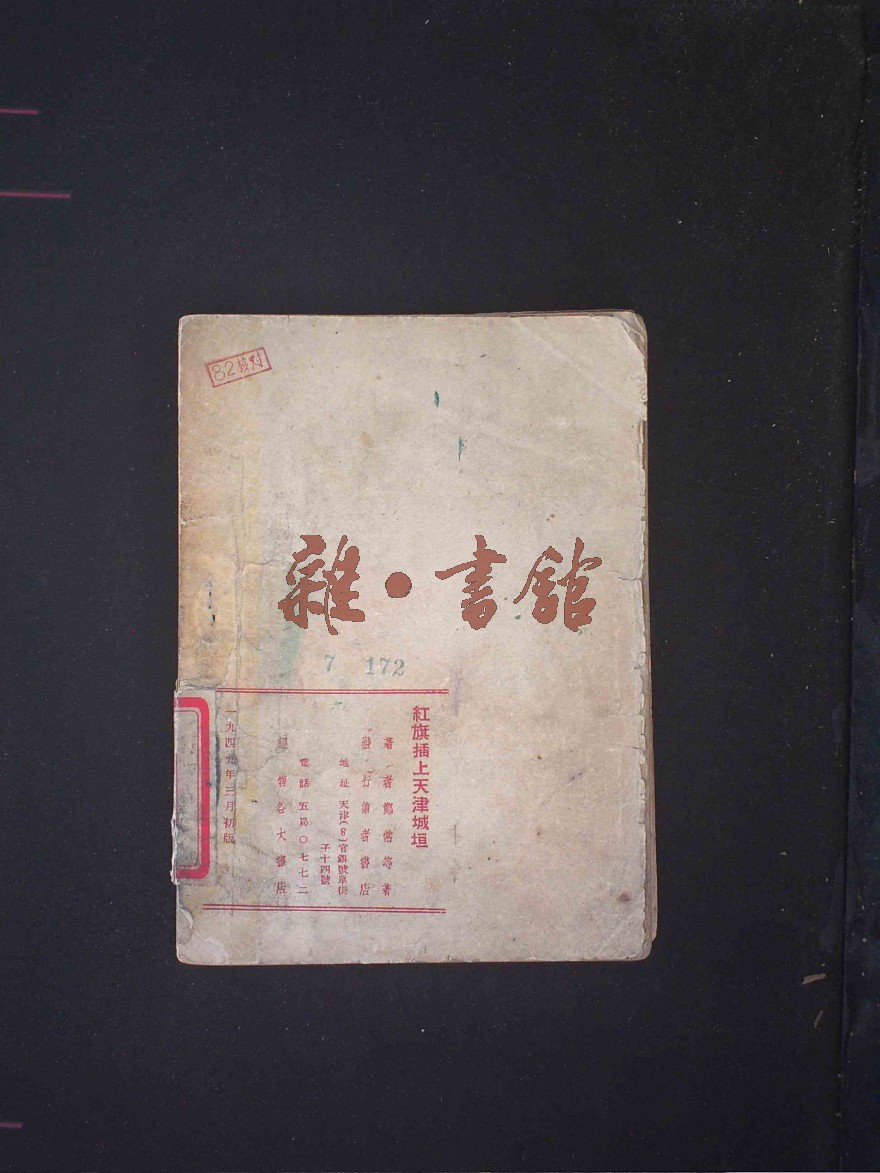 82校对
雜·書舘
7 172
紅旗插上天津城垣
著者鄭偌等著
發行讀者書店
地址 天津(8)官銀號單街
子十四號
電話五局〇七七二
經售各大書店
一九四九年三月初版